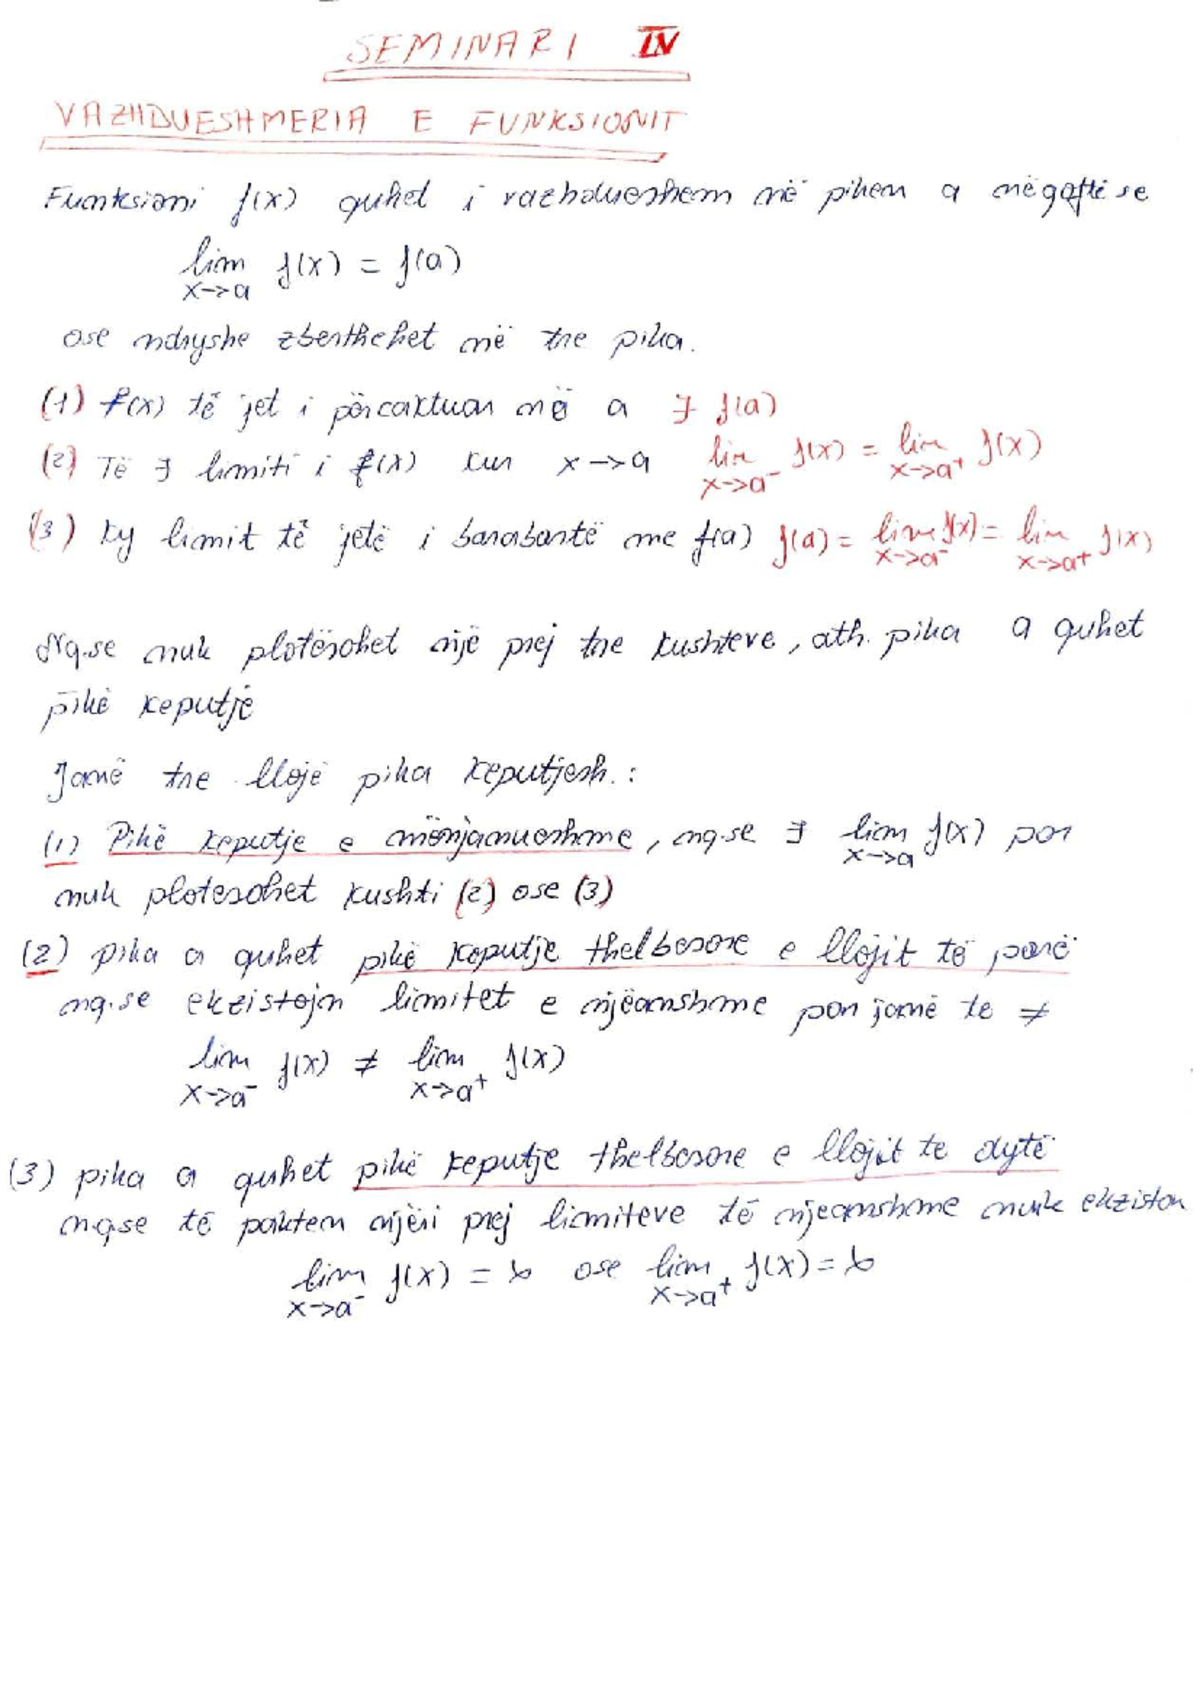 SEMINARI IV
VAZHDUESHMERIA E FUNKSIONIT
Funksioni f(x) quhet i vazhdueshem në piken a nëqoftë se
lim f(x) = f(a)
x→a
ose ndryshe zberthehet në tre pika.
(1) f(x) të jet i përcaktuar në a ∃ f(a)
(2) Të ∃ limiti i f(x) kur x→a lim f(x) = lim f(x)
x→a⁻ x→a⁺
(3) Ky limit të jetë i barabartë me f(a) f(a) = lim f(x) = lim f(x)
x→a⁻ x→a⁺
Nq.se nuk plotësohet një prej tre kushteve, ath. pika a quhet
pikë keputje
Janë tre lloje pika keputjesh.:
(1) Pikë keputje e mënjanueshme, nq.se ∃ lim f(x) por
x→a
nuk plotesohet kushti (2) ose (3)
(2) pika a quhet pikë keputje thelbesore e llojit të parë
nq.se ekzistojn limitet e njëanshme por janë te ≠
lim f(x) ≠ lim f(x)
x→a⁻ x→a⁺
(3) pika a quhet pikë keputje thelbesore e llojit te dytë
nq.se të pakten njëri prej limiteve të njeanshme nuk ekziston
lim f(x) = ∞ ose lim f(x) = ∞
x→a⁻ x→a⁺